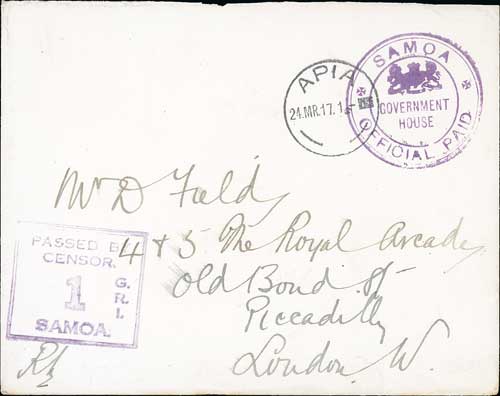 APIA
24.MR.17.1
SAMOA
GOVERNMENT
HOUSE
OFFICIAL PAID
Mr D Field
4 & 5 The Royal Arcade,
Old Bond St
Piccadilly
London. W.
PASSED B
CENSOR.
1
G.R.I.
SAMOA.